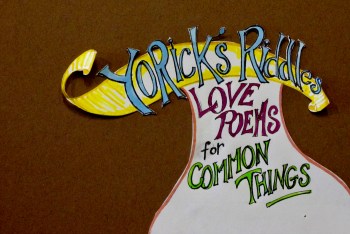 YORick's Riddles
LOVE
POEMS
for
COMMON
THINGS